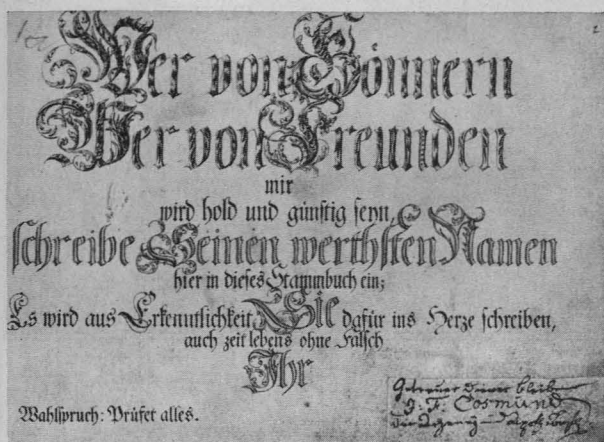 Wer von Gönnern
Wer von Freunden
mir
wird hold und günstig seyn,
schreibe Seinen werthsten Namen
hier in dieses Stammbuch ein;
Es wird aus Erkenntlichkeit Sie dafür ins Herze schreiben,
auch zeit lebens ohne Falsch
Ihr
Getreuer Diener bleiben
J. F. Cosmund
Wahlspruch: Prüfet alles.
2